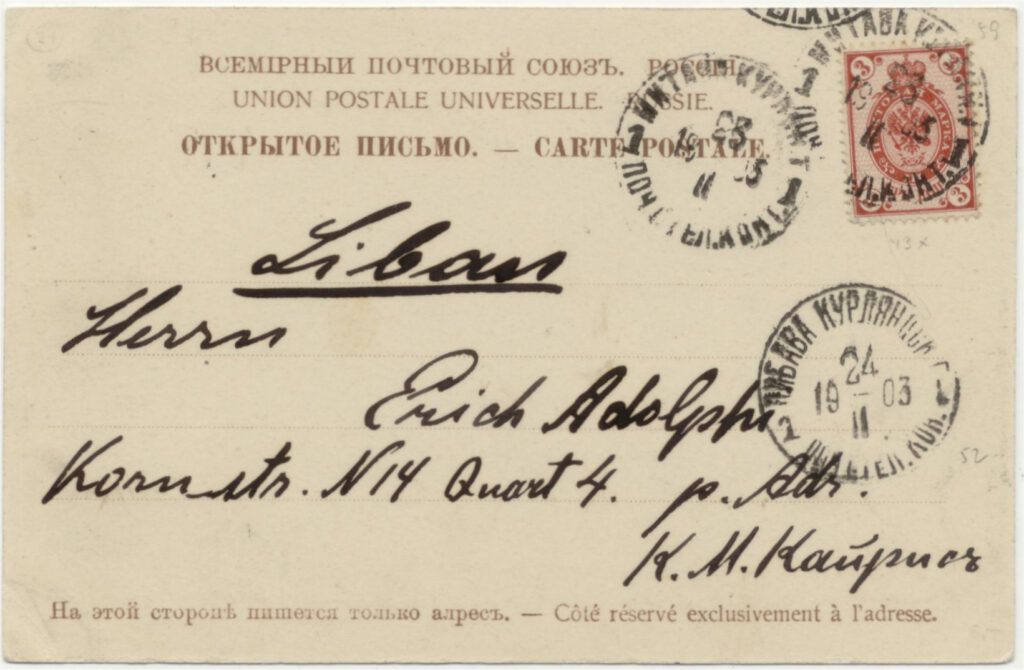 ВСЕМІРНЫЙ ПОЧТОВЫЙ СОЮЗЪ. РОССІЯ.
UNION POSTALE UNIVERSELLE. RUSSIE.
ОТКРЫТОЕ ПИСЬМО. — CARTE POSTALE.
МИТАВА КУРЛ
1903
II
1
МИТАВА КУР
1903
II
1
3 3
МАРКА
3 3
Liban
Herrn
Erich Adolphi
Kornstr. N14 Quart 4. p. Adr.
К. М.
ЛИБАВА КУРЛЯНДСК
24
19 – 03
II
2
52
59
На этой сторонѣ пишется только адресъ. — Côté réservé exclusivement à l'adresse.